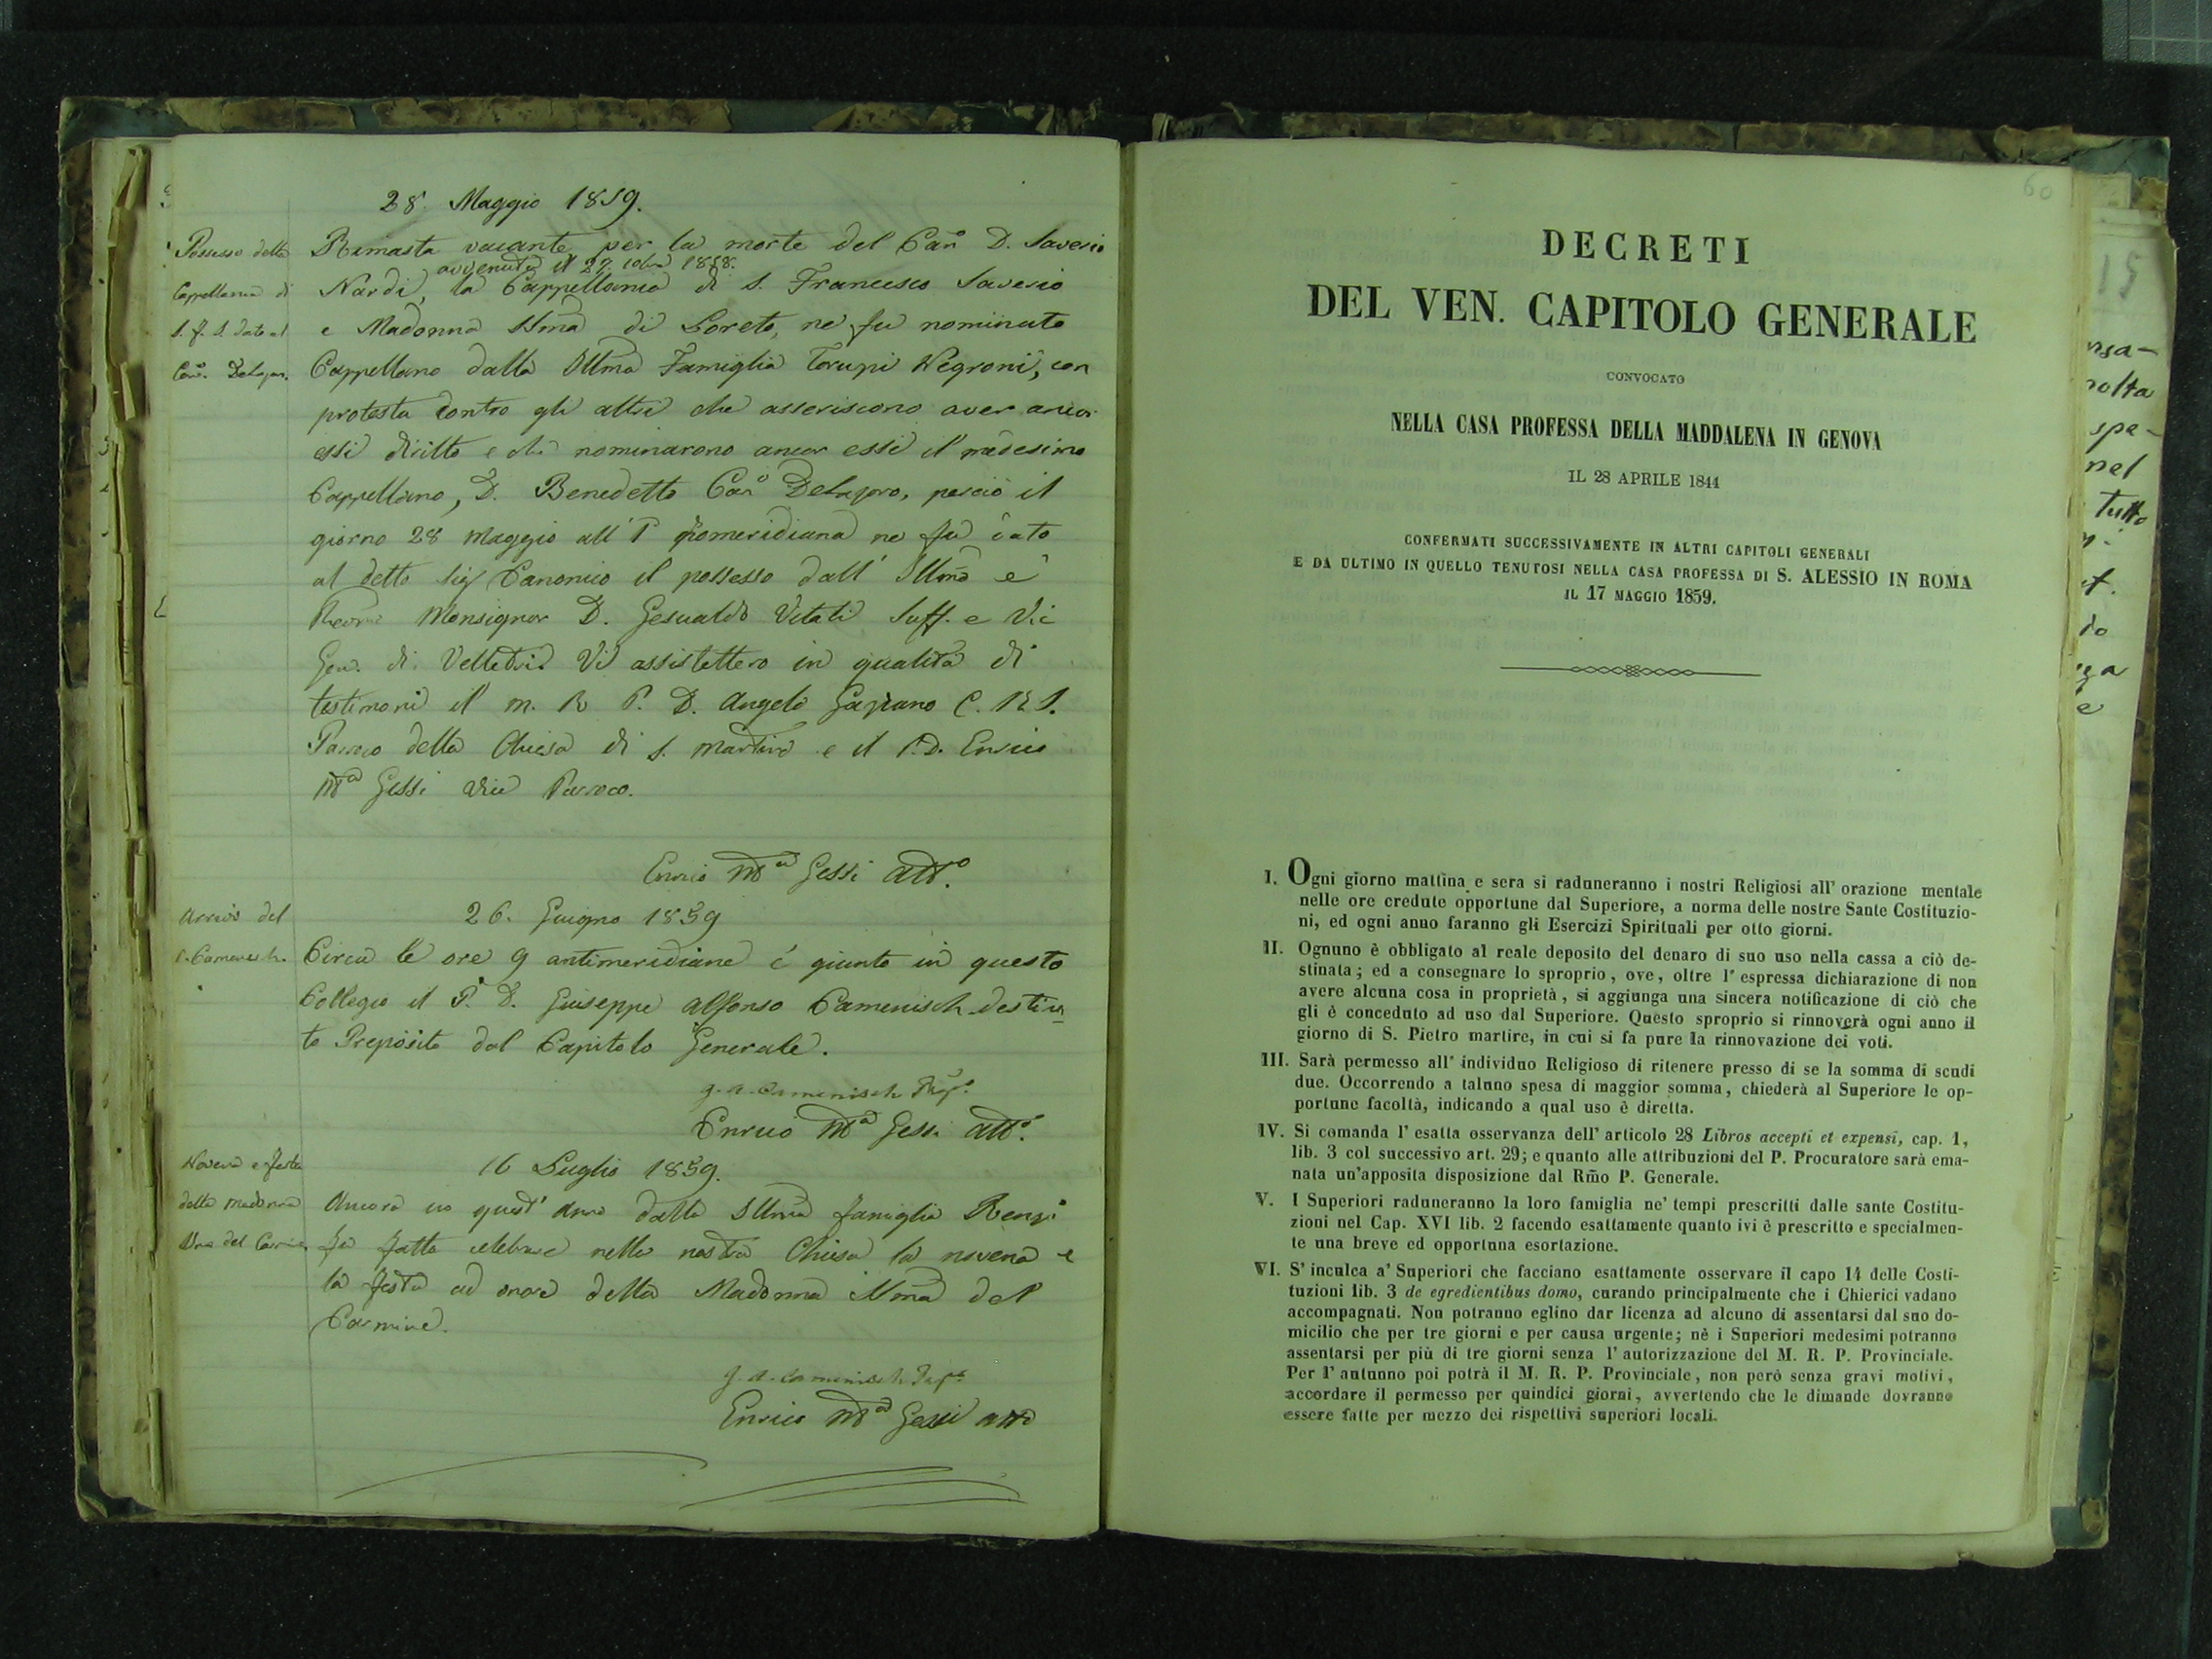 28. Maggio 1859.
Possesso della
Cappellania di
S. F. S. dato al
Can.
Rimasta vacante per la morte del Can.o D. Saverio
avvenuta il 27 1858.
Nardi, la Cappellania di S. Francesco Saverio
e Madonna SSma di Loreto, ne fu nominato
Cappellano dalla Illma Famiglia Negroni, con
protesta contro gli altri che asseriscono aver ancor
essi diritto e che nominarono ancor essi il medesimo
Cappellano, D. Benedetto Can.o perciò il
giorno 28 Maggio all' 1 pomeridiana ne fu dato
al detto Sig. Canonico il possesso dall' Illmo e
Monsignor D. Gesualdo Vitali Suff. e Vic
Gen. di Velletri. Vi assistettero in qualità di
testimoni il M. R. P. D. Angelo C. R. S.
Parroco della Chiesa di S. Martino e il P. D. Enrico
Ma Gessi Vice Parroco.
Enrico Ma Gessi Att.o
Arrivo del
P. Camenisch.
26. Giugno 1859
Circa le ore 9 antimeridiane è giunto in questo
Collegio il P. D. Giuseppe Alfonso Camenisch destina
to Preposito dal Capitolo Generale.
G. A. Camenisch Prep.o
Enrico Ma Gessi Att.o
Novena e festa
della Madonna
SSma del
16 Luglio 1859.
Ancora in quest' anno dalla Illma famiglia Renzi
fu fatta celebrare nella nostra Chiesa la novena e
la festa ad onore della Madonna SSma del
Carmine.
G. A. Camenisch Prep.to
Enrico Ma Gessi Atto
60
DECRETI
DEL VEN. CAPITOLO GENERALE
CONVOCATO
NELLA CASA PROFESSA DELLA MADDALENA IN GENOVA
IL 28 APRILE 1844
CONFERMATI SUCCESSIVAMENTE IN ALTRI CAPITOLI GENERALI
E DA ULTIMO IN QUELLO TENUTOSI NELLA CASA PROFESSA DI S. ALESSIO IN ROMA
IL 17 MAGGIO 1859.
I. Ogni giorno mattina e sera si raduneranno i nostri Religiosi all' orazione mentale
nelle ore credute opportune dal Superiore, a norma delle nostre Sante Costituzio-
ni, ed ogni anno faranno gli Esercizi Spirituali per otto giorni.
II. Ognuno è obbligato al reale deposito del denaro di suo uso nella cassa a ciò de-
stinata; ed a consegnare lo sproprio, ove, oltre l' espressa dichiarazione di non
avere alcuna cosa in proprietà, si aggiunga una sincera notificazione di ciò che
gli è conceduto ad uso dal Superiore. Questo sproprio si rinnoverà ogni anno il
giorno di S. Pietro martire, in cui si fa pure la rinnovazione dei voti.
III. Sarà permesso all' individuo Religioso di ritenere presso di se la somma di scudi
due. Occorrendo a taluno spesa di maggior somma, chiederà al Superiore le op-
portune facoltà, indicando a qual uso è diretta.
IV. Si comanda l' esatta osservanza dell' articolo 28 Libros accepti et expensi, cap. 1,
lib. 3 col successivo art. 29; e quanto alle attribuzioni del P. Procuratore sarà ema-
nata un'apposita disposizione dal Rm̃o P. Generale.
V. I Superiori raduneranno la loro famiglia ne' tempi prescritti dalle sante Costitu-
zioni nel Cap. XVI lib. 2 facendo esattamente quanto ivi è prescritto e specialmen-
te una breve ed opportuna esortazione.
VI. S' inculca a' Superiori che facciano esattamente osservare il capo 14 delle Costi-
tuzioni lib. 3 de egredientibus domo, curando principalmente che i Chierici vadano
accompagnati. Non potranno eglino dar licenza ad alcuno di assentarsi dal suo do-
micilio che per tre giorni e per causa urgente; nè i Superiori medesimi potranno
assentarsi per più di tre giorni senza l' autorizzazione del M. R. P. Provinciale.
Per l' autunno poi potrà il M. R. P. Provinciale, non però senza gravi motivi,
accordare il permesso per quindici giorni, avvertendo che le dimande dovranno
essere fatte per mezzo dei rispettivi superiori locali.